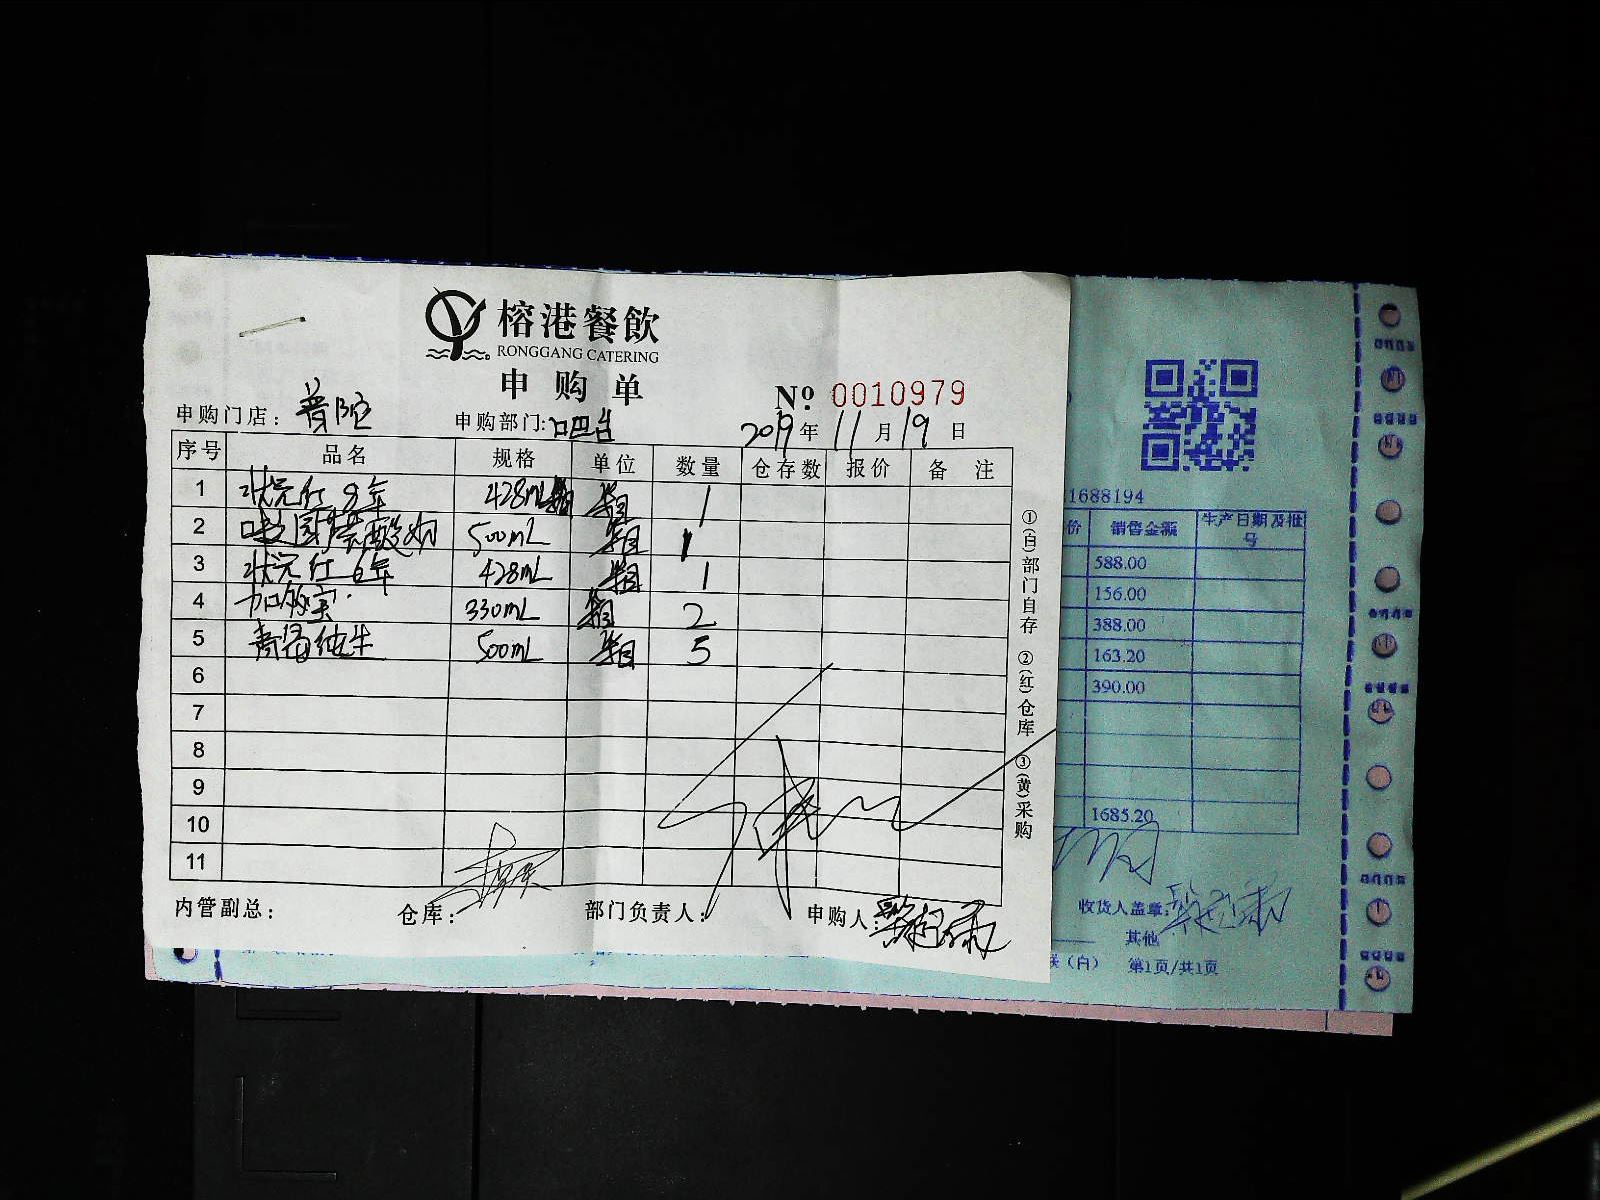 榕港餐飲
RONGGANG CATERING
申购单
№ 0010979
申购门店：普陀 申购部门：吧台 2019年11月19日
序号 品名 规格 单位 数量 仓存数 报价 备注
1 状元红 8年 428mL 箱 1
2 味之园 酸奶 500mL 箱 1
3 状元红 6年 428mL 箱 1
4 加多宝 330mL 箱 2
5 青岛纯生 500mL 箱 5
6
7
8
9
10
11
内管副总： 仓库： 部门负责人： 申购人：
①(白)部门自存 ②(红)仓库 ③(黄)采购
1688194
价 销售金额 生产日期及批号
588.00
156.00
388.00
163.20
390.00
1685.20
收货人盖章：
其他
联（白） 第1页/共1页